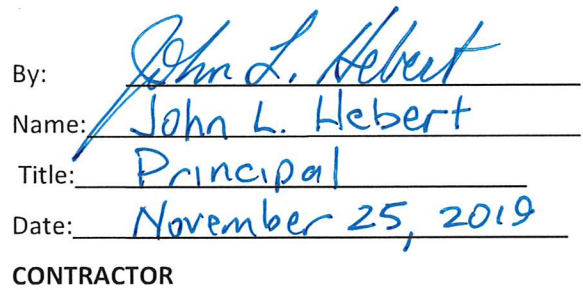 By: John L. Hebert
Name: John L. Hebert
Title: Principal
Date: November 25, 2019
CONTRACTOR